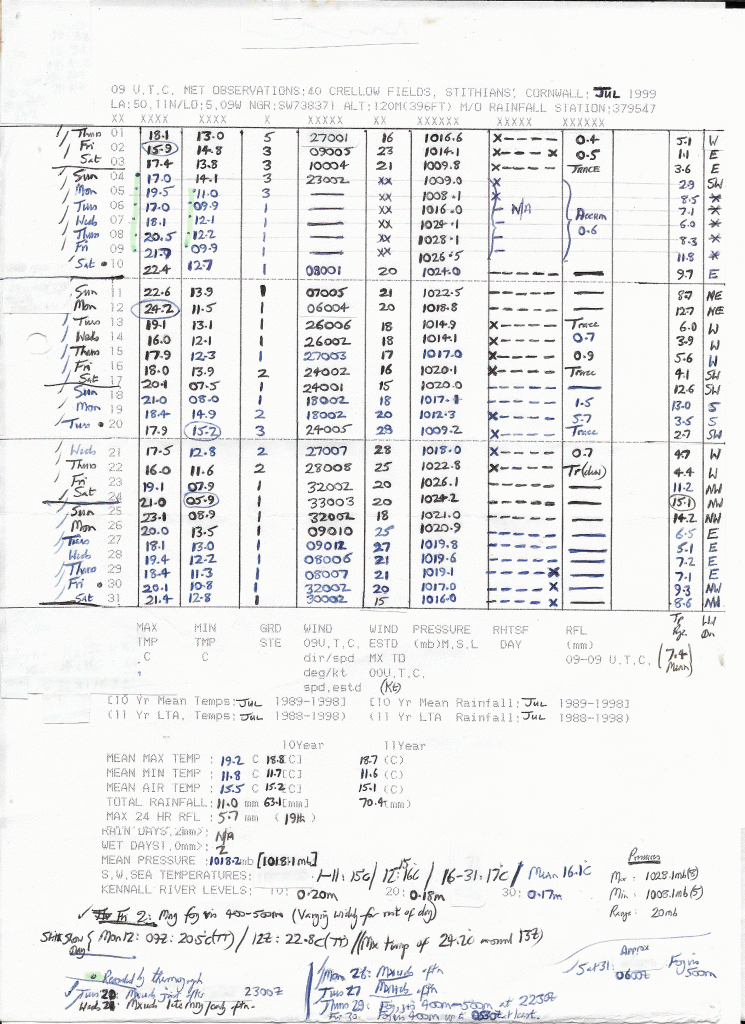 09 U.T.C. MET OBSERVATIONS:40 CRELLOW FIELDS, STITHIANS, CORNWALL: JUL 1999
LA:50,11N/LO:5,09W NGR:SW738371 ALT:120M(396FT) M/O RAINFALL STATION:379547
XX XXXX XXXX X XXXXX XX XXXXXX XXXXX XXXXXX
Thurs 01 18.1 13.0 5 27001 16 1016.6 X---- 0.4 5.1 W
Fri 02 15.9 14.8 3 09005 23 1014.1 X----X 0.5 1.1 E
Sat 03 17.4 13.8 3 10004 21 1009.8 X---- TRACE 3.6 E
Sun 04 17.0 14.1 3 23002 XX 1009.0 X 2.9 SW
Mon 05 19.5 11.0 3 — XX 1008.1 X 8.5 *
Tues 06 17.0 09.9 1 — XX 1016.0 - N/A Accum 7.1 *
Weds 07 18.1 12.1 1 — XX 1024.1 - 0.6 6.0 *
Thurs 08 20.5 12.2 1 — XX 1028.1 - 8.3 *
Fri 09 21.7 09.9 1 — XX 1026.5 - 11.8 *
Sat 10 22.4 12.7 1 08001 20 1024.0 ------ — 9.7 E
Sun 11 22.6 13.9 1 07005 21 1022.5 ------ — 8.7 NE
Mon 12 24.2 11.5 1 06004 20 1018.8 ------ — 12.7 NE
Tues 13 19.1 13.1 1 26006 18 1014.9 X---- Trace 6.0 W
Weds 14 16.0 12.1 1 26002 18 1014.1 X---- 0.7 3.9 W
Thurs 15 17.9 12.3 1 27003 17 1017.0 X---- 0.9 5.6 W
Fri 16 18.0 13.9 2 24002 16 1020.1 X---- Trace 4.1 SW
Sat 17 20.1 07.5 1 24001 15 1020.0 ------ — 12.6 SW
Sun 18 21.0 08.0 1 18002 18 1017.1 ------ 1.5 13.0 S
Mon 19 18.4 14.9 2 18002 20 1012.3 X---- 5.7 3.5 S
Tues 20 17.9 15.2 3 24005 29 1009.2 X---- Trace 2.7 SW
Weds 21 17.5 12.8 2 27007 28 1018.0 X---- 0.7 4.7 W
Thurs 22 16.0 11.6 2 28008 25 1022.8 X---- Tr(dew) 4.4 W
Fri 23 19.1 07.9 1 32002 20 1026.1 ------ — 11.2 NW
Sat 24 21.0 05.9 1 33003 20 1024.2 ------ — 15.1 NW
Sun 25 23.1 08.9 1 32002 18 1021.0 ------ — 14.2 NW
Mon 26 20.0 13.5 1 09010 25 1020.9 ------ — 6.5 E
Tues 27 18.1 13.0 1 09012 27 1019.8 ------ — 5.1 E
Weds 28 19.4 12.2 1 08006 21 1019.6 ------ — 7.2 E
Thurs 29 18.4 11.3 1 08007 21 1019.1 -----X — 7.1 E
Fri 30 20.1 10.8 1 32002 20 1017.0 -----X — 9.3 NW
Sat 31 21.4 12.8 1 30002 15 1016.0 -----X — 8.6 NW
MAX MIN GRD WIND WIND PRESSURE RHTSF RFL Tp WD
TMP TMP STE 09U.T.C. ESTD (mb)M.S.L DAY (mm) Rge. Dn
C C dir/spd MX TO 09-09 U.T.C. (7.4 Mean)
deg/kt 00U.T.C.
spd.estd (Kt)
[10 Yr Mean Temps: JUL 1989-1998] [10 Yr Mean Rainfall: JUL 1989-1998]
(11 Yr LTA, Temps: JUL 1988-1998) (11 Yr LTA Rainfall: JUL 1988-1998)
10Year 11Year
MEAN MAX TEMP : 19.2 C 18.8[C] 18.7 (C)
MEAN MIN TEMP : 11.8 C 11.7[C] 11.6 (C)
MEAN AIR TEMP : 15.5 C 15.2[C] 15.1 (C)
TOTAL RAINFALL: 11.0 mm 63.1[mm] 70.4(mm)
MAX 24 HR RFL : 5.7 mm (19th)
RAIN DAYS.2mm>: N/A
WET DAYS1.0mm>: 2
MEAN PRESSURE : 1018.2mb [1018.1mb]
S.W.SEA TEMPERATURES: 1-11: 15C / 12-15: 16C / 16-31: 17C / Mean 16.1C
KENNALL RIVER LEVELS: 10: 0.20m 20: 0.18m 30: 0.17m
Pressures
Max: 1028.1mb(8)
Min: 1008.1mb(5)
Range: 20mb
Fri 2: Mng fog vis 400-500m (Varying widely for rest of day)
Mon 12: 09Z: 20.5C(TT) / 12Z: 22.8C(TT) // (Mx temp of 24.2C around 13Z)
Recorded by thermograph
Tues 20: 2300Z
Weds 21:
Mon 26: aftn
Tues 27 aftn
Thurs 29: Fog, vis 400m-500m at 2230Z
Fri 30: Fog vis 400m
Approx
Sat 31: 0600Z Fog vis 500m